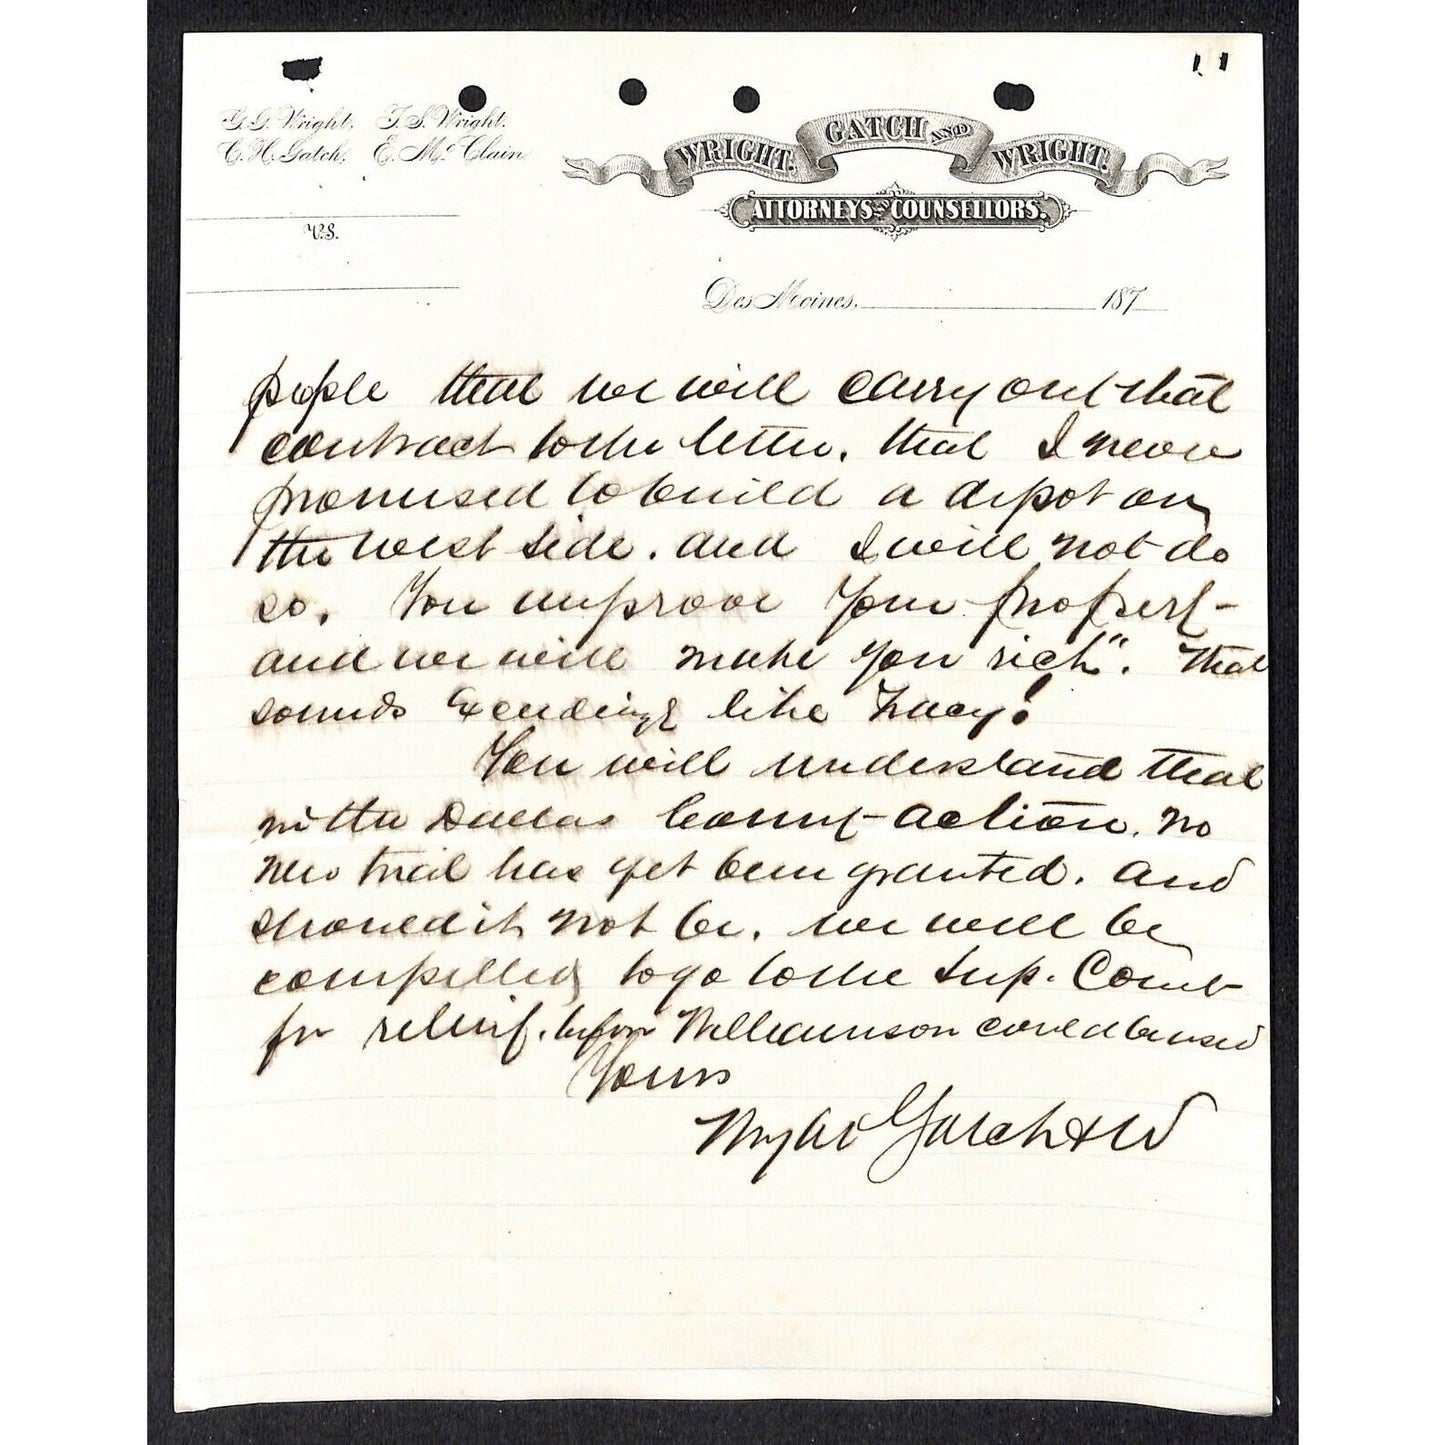 G.G. Wright. T.S. Wright.
C.H. Gatch. E. McClain
WRIGHT. GATCH AND WRIGHT.
ATTORNEYS AND COUNSELLORS.
V.S.
Des Moines, 187
people that we will carry out that
contract to the letter. that I never
promised to build a depot on
the west side. and I will not do
so. You improve your propert-
and we will make you rich". That
sounds exceedingly like
You will understand that
in the Dallas County action. no
new trial has yet been granted. and
should it not be. we will be
compelled to go to the Sup. Court
for relief. before Williamson could be used
Yours
Gatch & W